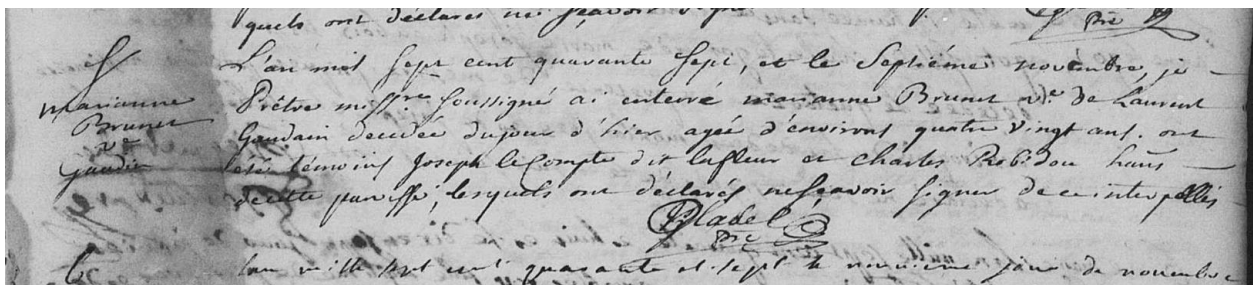 quels ont déclarés ne sçavoir signer
Ptre
S
marianne
Brunet
ve
Gaudin
L'an mil Sept cent quarante Sept, et le Septiéme novembre, je
Prêtre missre soussigné ai enterré marianne Brunet ve. de Laurent
Gaudain decedée du jour d'hier agée d'environs quatre vingt ans. ont
été témoins Joseph le Compte dit lafleur et Charles Robidou hans
de cette paroisse, lesquels ont déclarés ne sçavoir signer de ce interpellés
Ptre
L'an mille sept cent quarante et sept le neuvieme jour de novembre